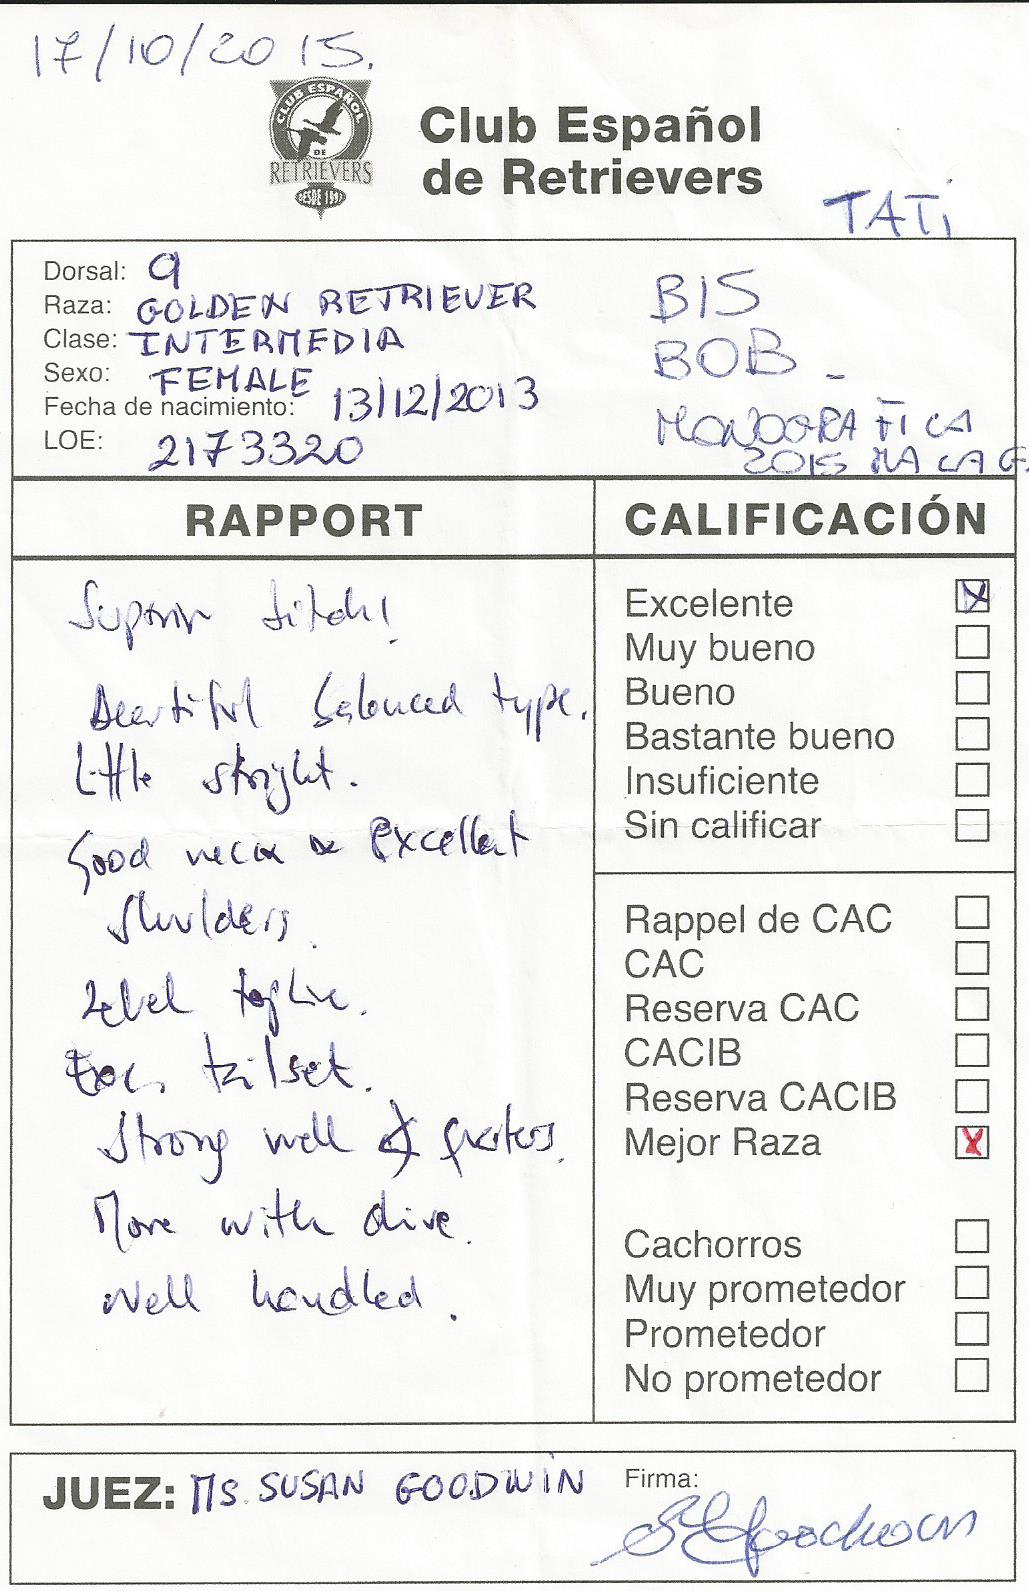 17/10/2015.
CLUB ESPAÑOL
DE
RETRIEVERS
DESDE 1991
Club Español
de Retrievers
TATi
Dorsal: 9
Raza: GOLDEN RETRIEVER
Clase: INTERMEDIA
Sexo: FEMALE
Fecha de nacimiento: 13/12/2013
LOE: 2173320
BIS
BOB -
MONOGRAFICA
2015 MALAG.
RAPPORT
Superior bitch!
Beautiful balanced type.
Little straight.
Good neck & Excellent
Shoulders.
Level topline.
Exc. tailset.
Strong well quarters.
Move with drive.
Well handled.
CALIFICACIÓN
Excelente X
Muy bueno
Bueno
Bastante bueno
Insuficiente
Sin calificar
Rappel de CAC
CAC
Reserva CAC
CACIB
Reserva CACIB
Mejor Raza X
Cachorros
Muy prometedor
Prometedor
No prometedor
JUEZ: MS. SUSAN GOODWIN
Firma:
S Goodwin